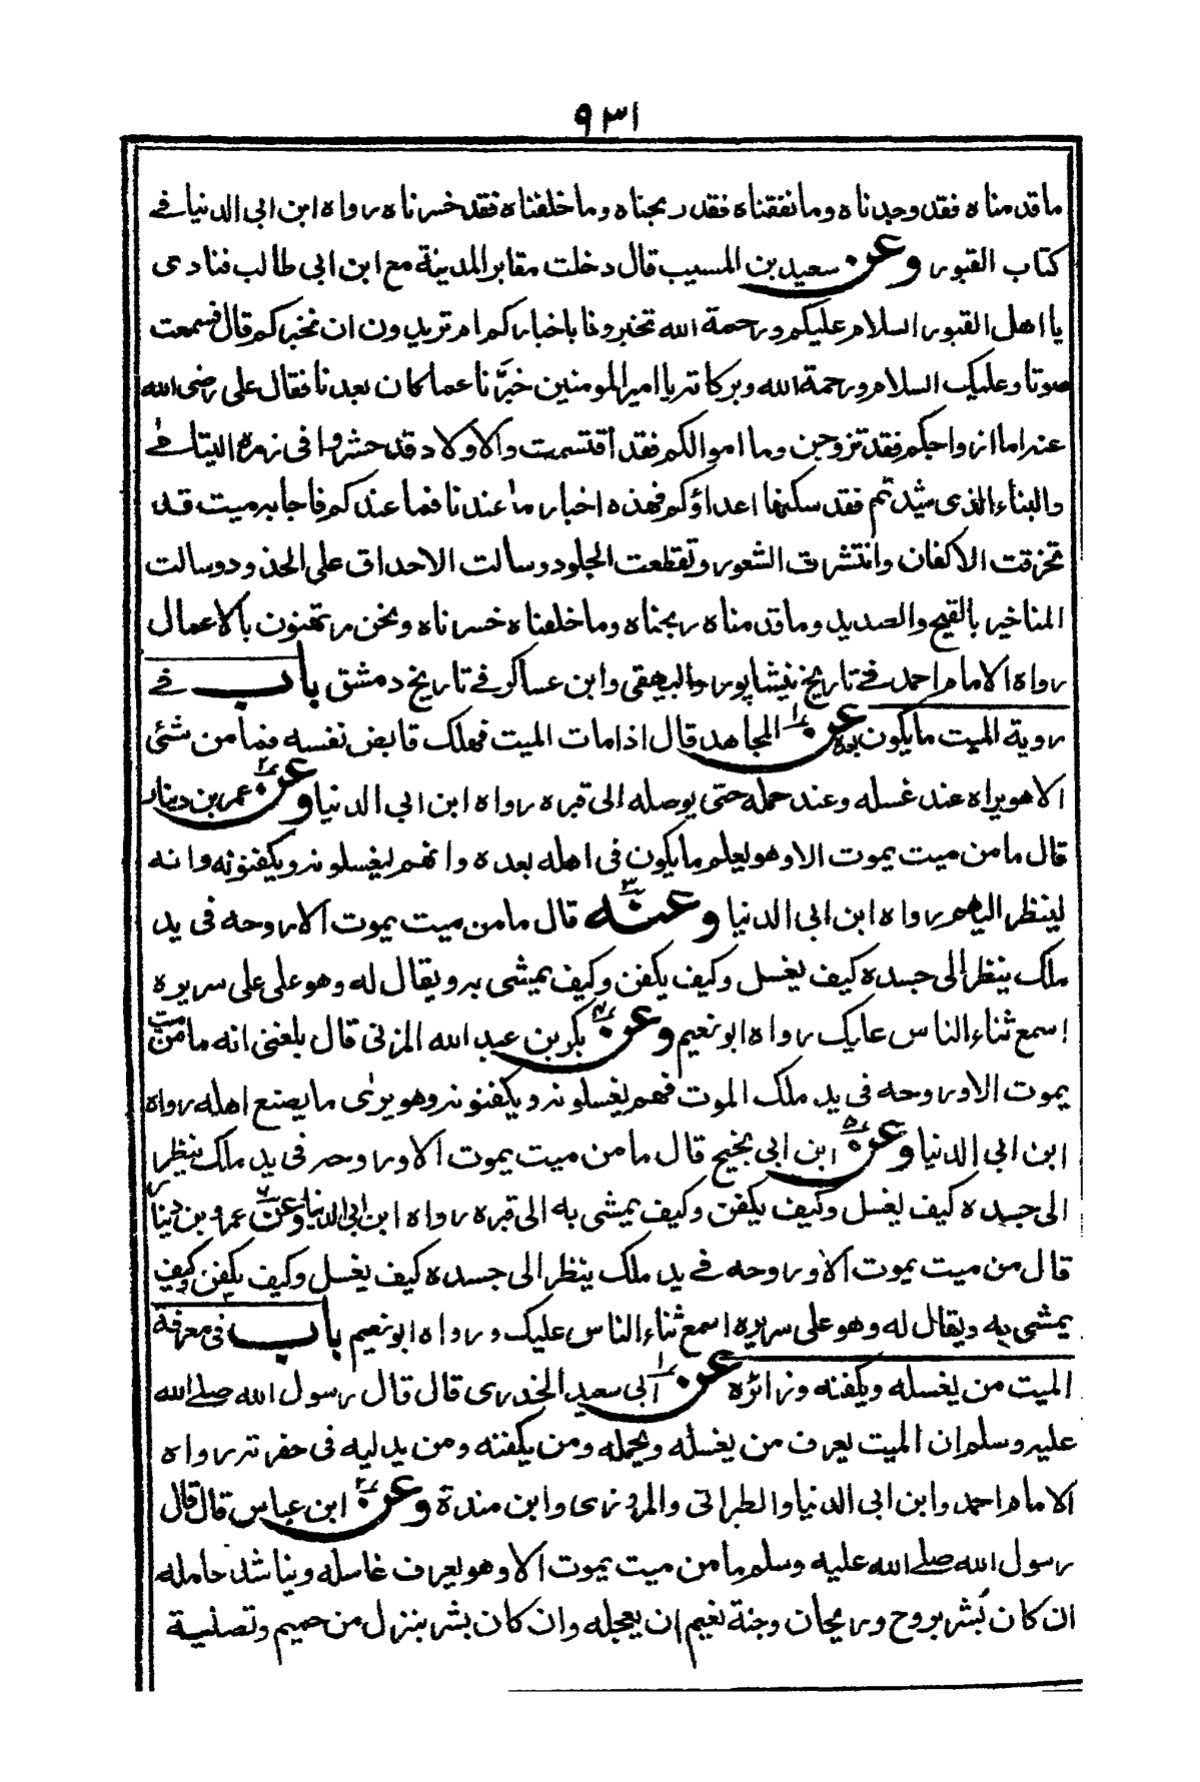 ٩٣١
ما قدمناه فقد وجدناه وما نفقناه فقد ربحناه وما خلفناه فقد خسرناه رواه ابن ابى الدنيا فے
كتاب القبور وعن سعيد بن المسيب قال دخلت مقابر المدينة مع ابن ابى طالب فنادى
يا اهل القبور السلام عليكم ورحمة الله تخبرونا باخباركم ام تريدون ان نخبركم قال فسمعت
صوتا وعليك السلام ورحمة الله وبركاته يا امير المومنين خبَّرنا عما كان بعدنا فقال على رضى الله
عنه اما ازواجكم فقد تزوجن وما اموالكم فقد اقتسمت والاولاد قد حشروا فى زمرة اليتامى
والبناء الذى شيدتم فقد سكنها اعداؤكم فهذه اخبار ما عندنا فما عندكم فاجابه ميت قد
تخرقت الاكفان وانتشرت الشعور وتقطعت الجلود وسالت الاحداق على الخدود وسالت
المناخير بالقيح والصديد وما قدمناه ربحناه وما خلفناه خسرناه ونحن مرتهنون بالاعمال
رواه الامام احمد فے تاريخ نيشاپور والبيهقى وابن عساكر فے تاريخ دمشق باب فے
روية الميت ما يكون بعده عن المجاهد قال اذا مات الميت فملك قابض نفسه فما من شئى
الا هو يراه عند غسله وعند حمله حتى يوصله الى قبره رواه ابن ابى الدنيا وعن عمر بن دينار
قال ما من ميت يموت الا وهو يعلم ما يكون فى اهله بعده وانهم ليغسلونه ويكفنونه وانه
لينظر اليهم رواه ابن ابى الدنيا وعنه قال ما من ميت يموت الا روحه فى يد
ملك ينظر الى جسده كيف يغسل وكيف يكفن وكيف يمشى به ويقال له وهو على على سريره
اسمع ثناء الناس عليك رواه ابو نعيم وعن بكر بن عبد الله المزنى قال بلغنى انه ما من ميت
يموت الا وروحه فى يد ملك الموت فهم يغسلونه ويكفنونه وهو يرٰى ما يصنع اهله رواه
ابن ابى الدنيا وعن ابن ابى نجيح قال ما من ميت يموت الا وروحه فى يد ملك ينظر
الى جسده كيف يغسل وكيف يكفن وكيف يمشى به الى قبره رواه ابن ابى الدنيا وعن عمرو بن دينار
قال من ميت يموت الا وروحه فے يد ملك ينظر الى جسده كيف يغسل وكيف يكفن وكيف
يمشى به ويقال له وهو على سريره اسمع ثناء الناس عليك و رواه ابو نعيم باب فى معرفة
الميت من يغسله ويكفنه وزائره عن ابى سعيد الخدرى قال قال رسول الله صلے الله
عليه وسلم ان الميت يعرف من يغسله ويحمله ومن يكفنه ومن يدليه فى حفرته رواه
الامام احمد وابن ابى الدنيا والطبراتى والمروزى وابن مندة وعن ابن عباس قال قال
رسول الله صلے الله عليه وسلم ما من ميت يموت الا وهو يعرف غاسله ويناشد حامله
ان كان بُشر بروح وريحان وجنة نعيم ان يعجله وان كان بشر بنزل من حميم وتصلية